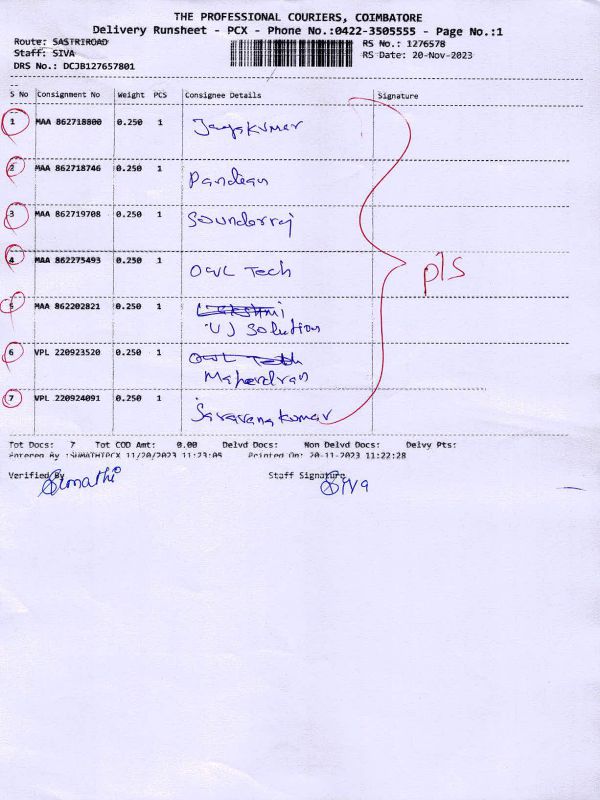 THE PROFESSIONAL COURIERS, COIMBATORE
Delivery Runsheet - PCX - Phone No.:0422-3505555 - Page No.:1
Route: SASTRIROAD
RS No.: 1276578
Staff: SIVA
RS Date: 20-Nov-2023
DRS No.: DCJB127657801
S No Consignment No Weight PCS Consignee Details Signature
1 MAA 862718800 0.250 1 Jayakumar
2 MAA 862718746 0.250 1 Pandian
3 MAA 862719708 0.250 1 Sounderraj
4 MAA 862275493 0.250 1 OWL Tech
pls
5 MAA 862202821 0.250 1 Lakshmi
VJ Solution
6 VPL 220923520 0.250 1 OWL Tech
Mahendran
7 VPL 220924091 0.250 1 Saravanakumar
Tot Docs: 7 Tot COD Amt: 0.00 Delvd Docs: Non Delvd Docs: Delvy Pts:
Entered By :SUMATHIPCX 11/20/2023 11:23:05 Printed On: 20-11-2023 11:22:28
Verified By Staff Signature
Sumathi Siva